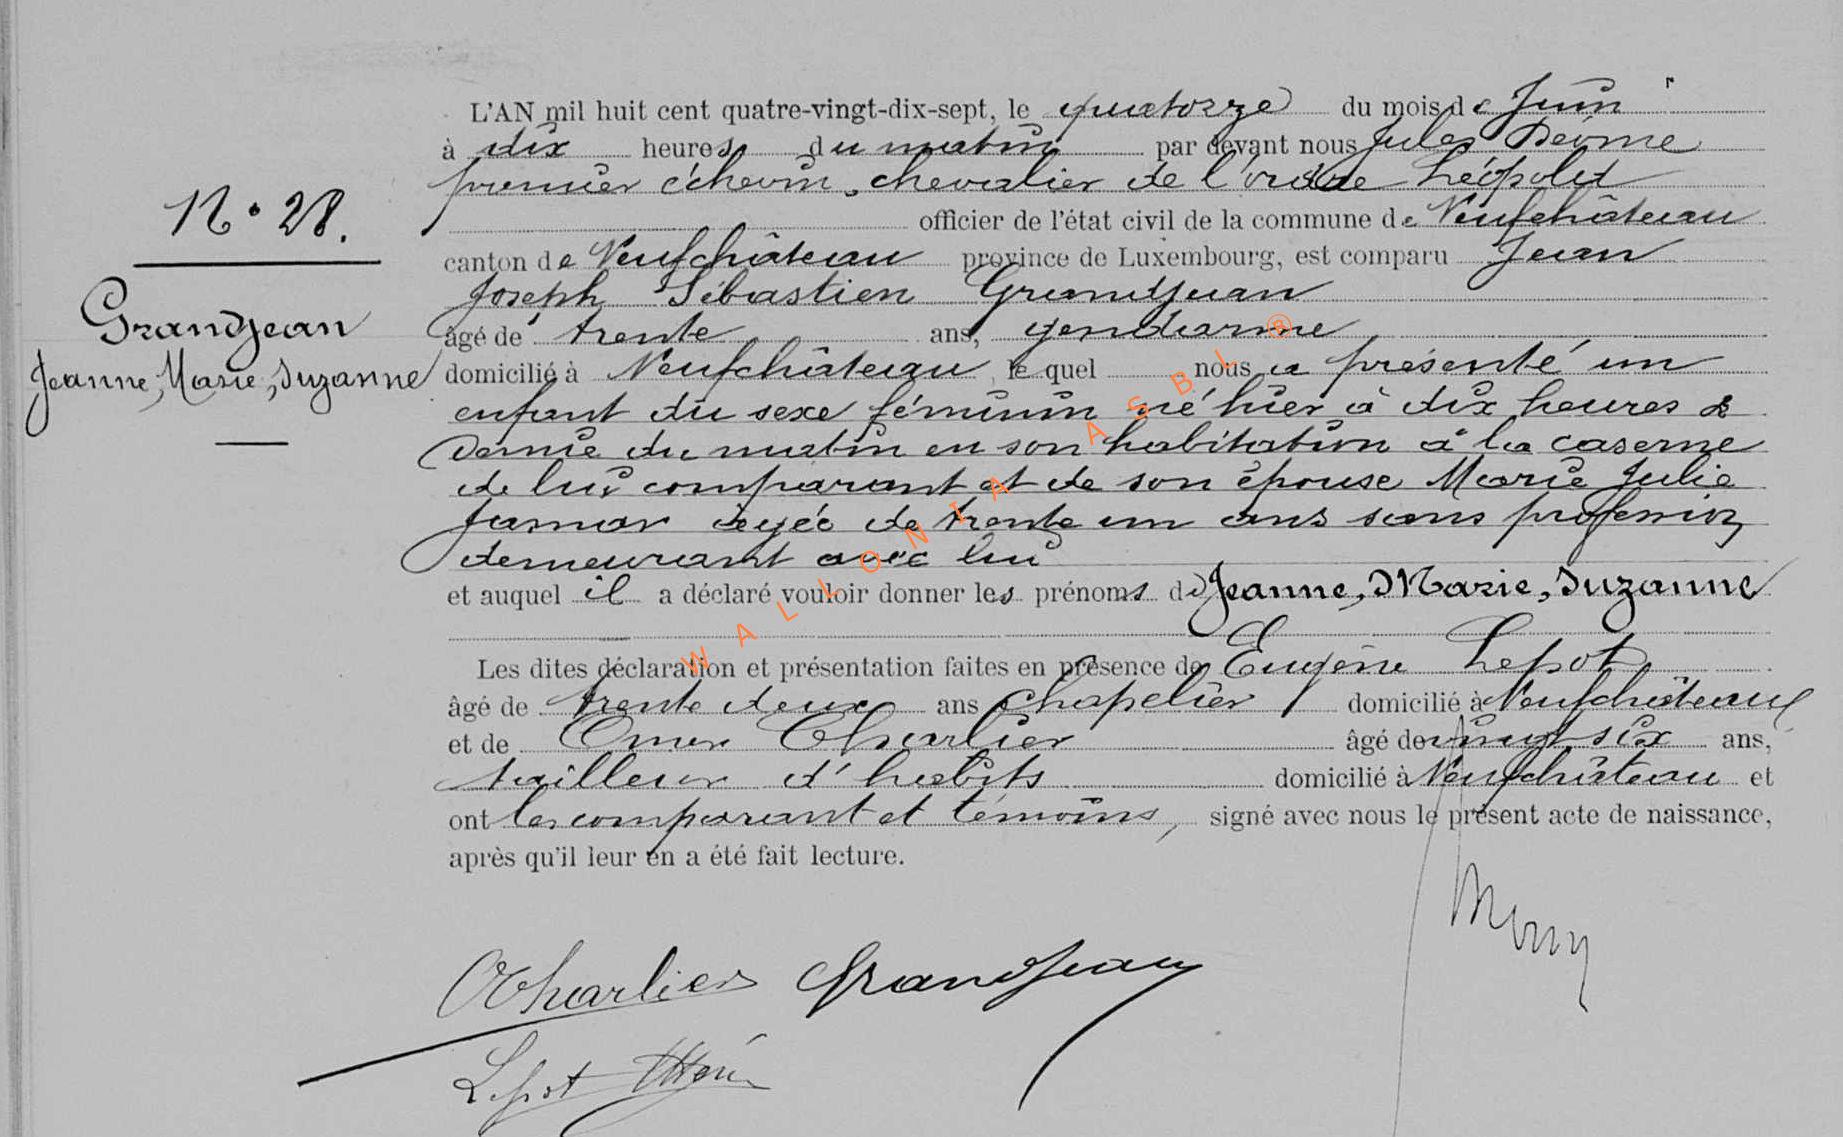 L'AN mil huit cent quatre-vingt-dix-sept, le quatorze du mois de Juin
à dix heures du matin par devant nous Jules
premier échevin, chevalier de l'ordre Léopold
officier de l'état civil de la commune de Neufchâteau
canton de Neufchâteau province de Luxembourg, est comparu Jean
Joseph Sébastien Grandjean
âgé de trente ans, gendarme
domicilié à Neufchâteau le quel nous a présenté un
enfant du sexe féminin né hier à dix heures &
demie du matin en son habitation à la caserne
de lui comparant et de son épouse Marie Julie
Jamar âgée de trente un ans sans profession
demeurant avec lui
et auquel il a déclaré vouloir donner les prénoms de Jeanne, Marie, Suzanne
Les dites déclaration et présentation faites en présence de Eugène Lepot
âgé de trente deux ans chapelier domicilié à Neufchâteau
et de Omer Charlier âgé de vingt six ans,
tailleur d'habits domicilié à Neufchâteau et
ont les comparant et témoins, signé avec nous le présent acte de naissance,
après qu'il leur en a été fait lecture.
N° 28.
Grandjean
Jeanne, Marie, Suzanne
OCharlier Grandjean
Lepot
WALLONIA ASBL ®